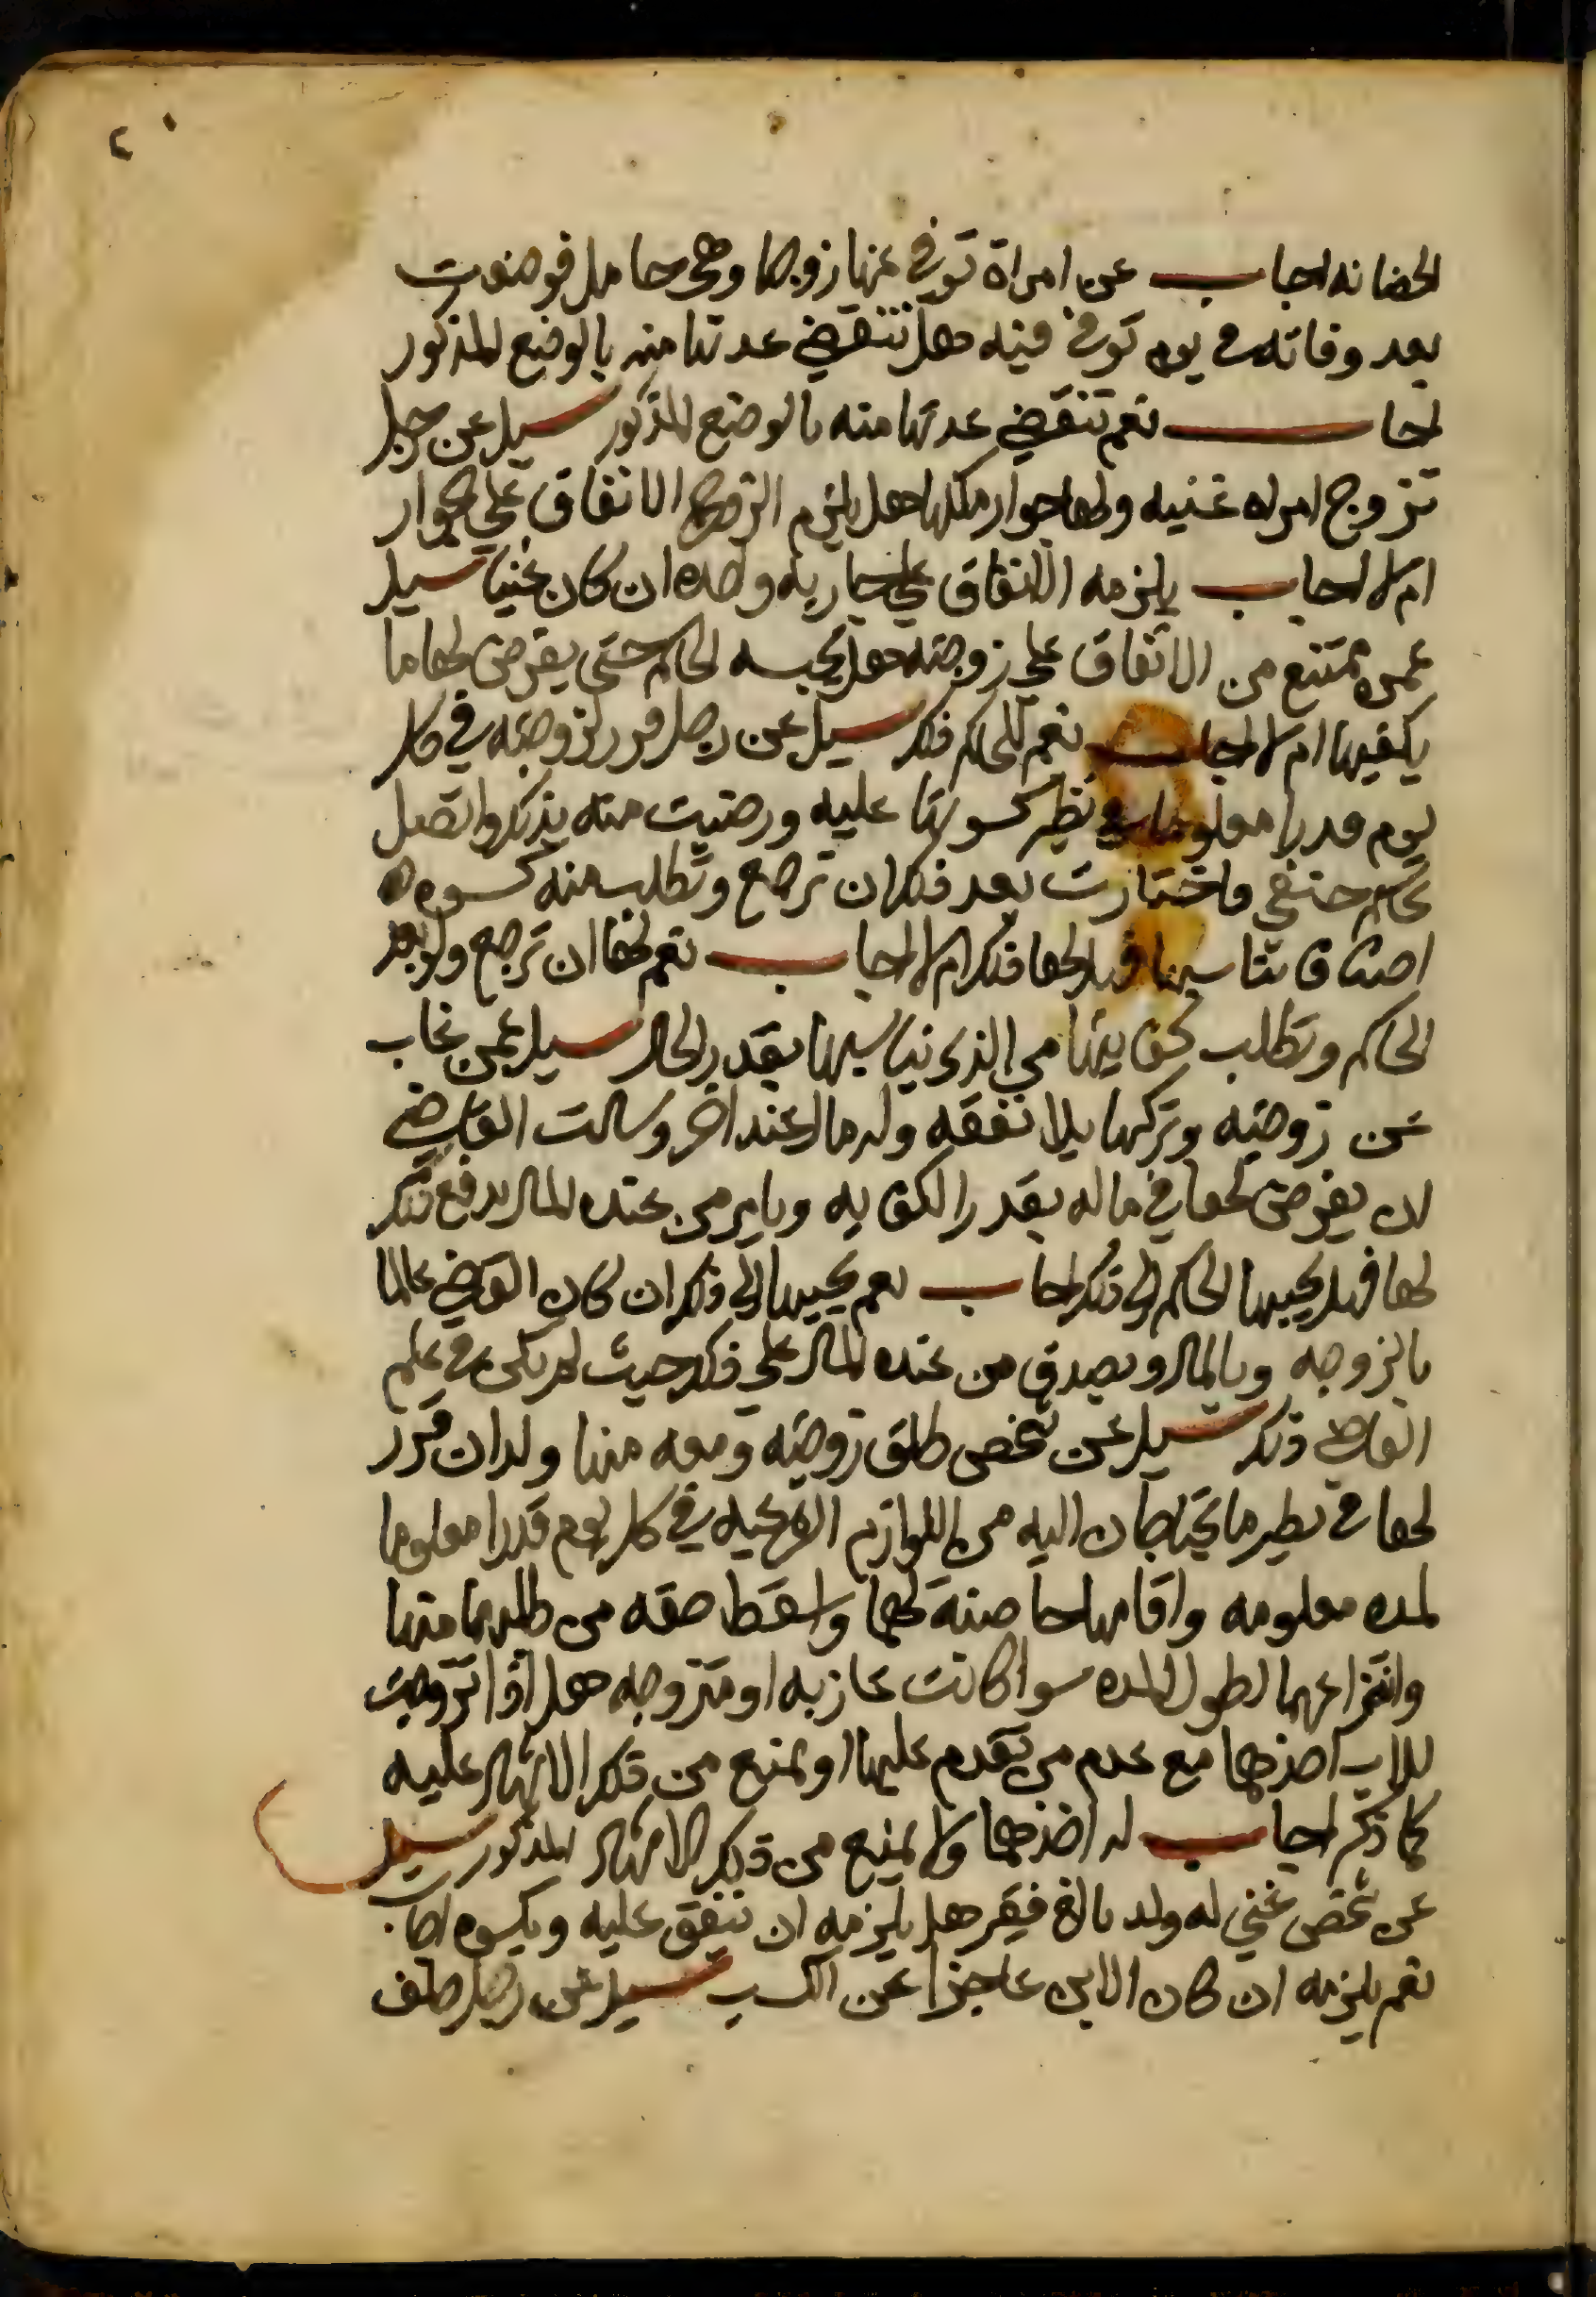 ٢٠
الحضانه اجاب عن امراة توفي عنها زوجها وهي حامل فوضعت
بعد وفاته في يوم توفي فيه هل تنقضي عدتها منه بالوضع المذكور
اجاب نعم تنقضي عدتها منه بالوضع المذكور سيل عن رجل
تزوج امراه غنيه ولها جوار ملكها هل يلزم الزوج الانفاق علي الجوار
ام لا اجاب يلزمه الانفاق علي جاريه واحده ان كان غنيا سيل
عمن يمتنع من الانفاق علي زوجته هل يحبسه الحاكم حتى يفرض لها ما
يكفيها ام لا اجاب نعم للحاكم ذلك سيل عن رجل قرر لزوجته في كل
يوم قدرا معلوما في نظير كسوتها عليه ورضيت منه بذلك واتصل
بحاكم حنفي واختارت بعد ذلك ان ترجع وتطلب منه كسوه
اصناف تناسبها فهل لها ذلك ام لا اجاب نعم لها ان ترجع ولو بعد
الحاكم وتطلب كفايتها من الذي يناسبها بقدر الحال سيل عمن غاب
عن زوجته وتركها بلا نفقه وله مال عند اخر وسالت القاضي
ان يفرض لها في ماله بقدر الكفايه ويامر من عنده المال بدفع ذلك
لها فهل يجيبها الحاكم الى ذلك اجاب نعم يجيبها الي ذلك ان كان القاضي عالما
بالزوجه وبالمال ويصدق من عنده المال علي ذلك حيث لم يكن في علم
القاضي ذلك سيل عن شخص طلق زوجته ومعه منها ولدان قرر
لهما في نظير ما يحتاجان اليه من اللوازم الشرعيه في كل يوم قدرا معلوما
لمده معلومه واقامها حاضنة لهما واسقط حقه من طلبهما منها
وانتزاعهما لطول المده سوا كانت عازبه او متزوجه هل اذا تزوجت
للاب اخذهما مع عدم من تقدم عليها او يمنع من ذلك الاشهاد عليه
كما ذكر اجاب له اخذهما ولا يمنع من ذلك الاشهاد المذكور سيل
عن شخص غني له ولد بالغ فقير هل يلزمه ان ينفق عليه ويكسوه اجاب
نعم يلزمه ان كان الابن عاجزا عن الكسب سيل عن رجل حلف